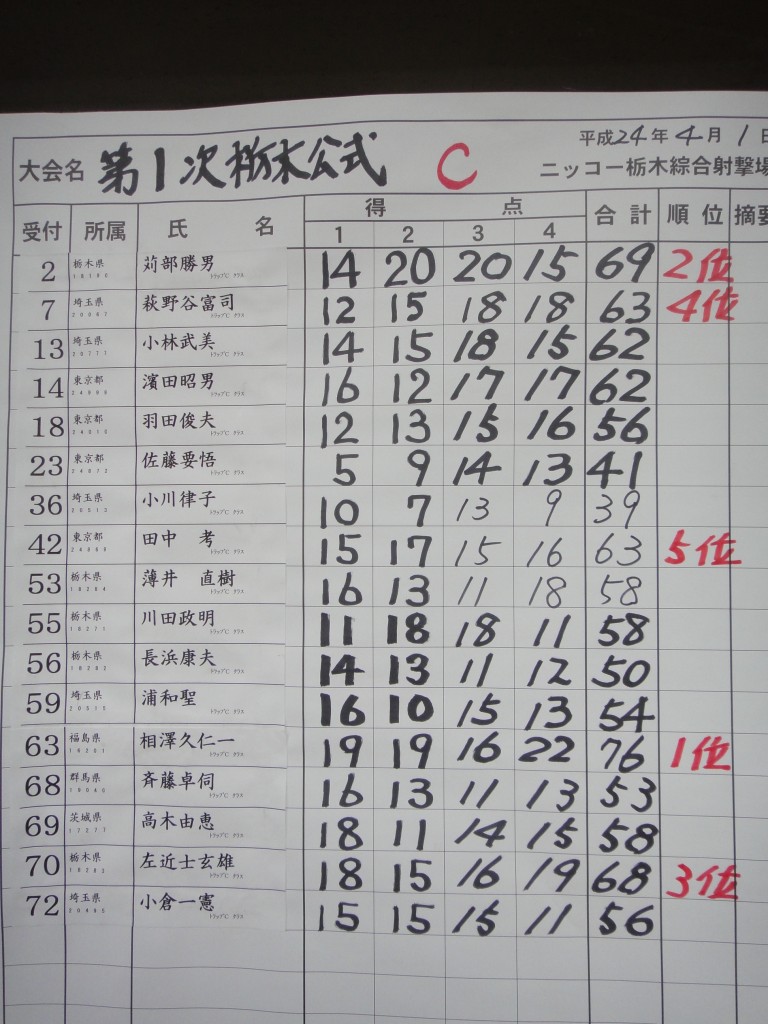 大会名 第1次栃木公式 C 平成24年4月1日
ニッコー栃木綜合射撃場
受付 所属 氏名 得点 合計 順位 摘要
1 2 3 4
2 栃木県 苅部勝男 14 20 20 15 69 2位
7 埼玉県 萩野谷富司 12 15 18 18 63 4位
13 埼玉県 小林武美 14 15 18 15 62
14 東京都 濱田昭男 16 12 17 17 62
18 東京都 羽田俊夫 12 13 15 16 56
23 東京都 佐藤要悟 5 9 14 13 41
36 埼玉県 小川律子 10 7 13 9 39
42 東京都 田中 考 15 17 15 16 63 5位
53 栃木県 薄井 直樹 16 13 11 18 58
55 栃木県 川田政明 11 18 18 11 58
56 栃木県 長浜康夫 14 13 11 12 50
59 埼玉県 浦和聖 16 10 15 13 54
63 福島県 相澤久仁一 19 19 16 22 76 1位
68 群馬県 斉藤卓伺 16 13 11 13 53
69 茨城県 高木由恵 18 11 14 15 58
70 栃木県 左近士玄雄 18 15 16 19 68 3位
72 埼玉県 小倉一憲 15 15 15 11 56